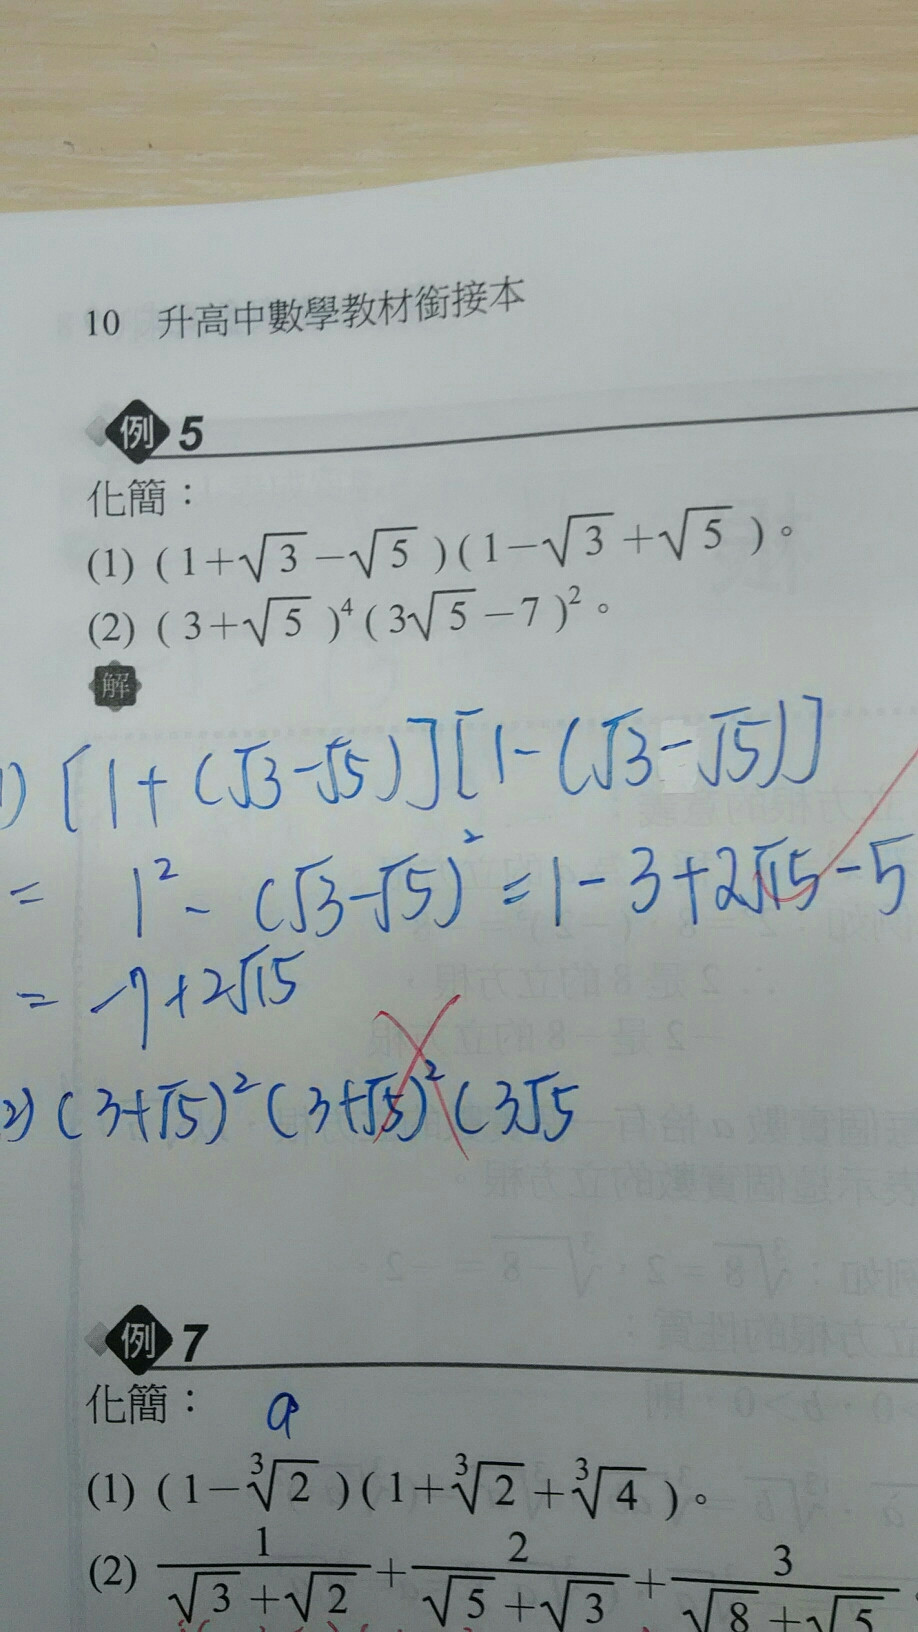 10 升高中數學教材銜接本
例 5
化簡：
(1) (1+√3−√5)(1−√3+√5)。
(2) (3+√5)⁴(3√5−7)²。
解
1) [1+(√3-√5)][1-(√3-√5)]
= 1² - (√3-√5)² = 1-3+2√15-5
= -7+2√15
2) (3+√5)²(3+√5)²(3√5
例 7
化簡： a
(1) (1−∛2)(1+∛2+∛4)。
(2) 1/(√3+√2) + 2/(√5+√3) + 3/(√8+√5)